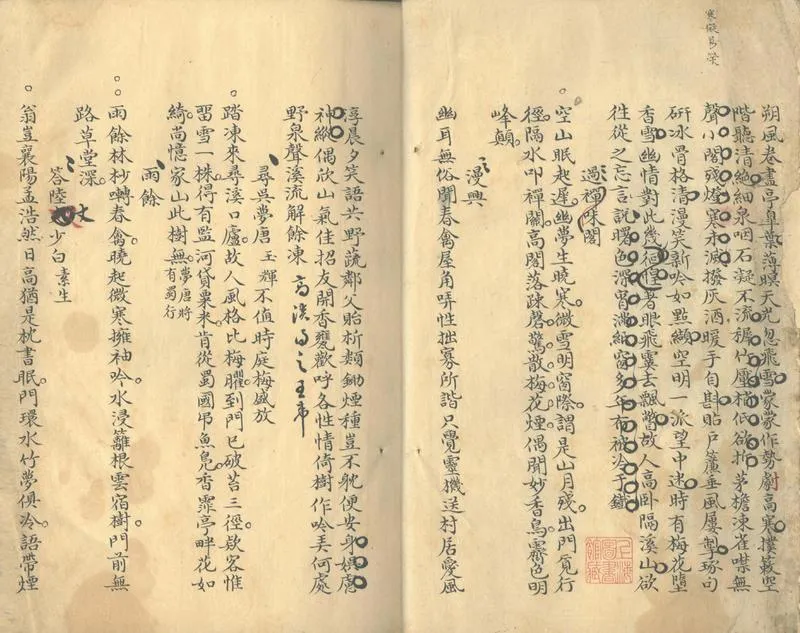 朔風卷畫亭臯葉薄暝天光忽飛雪蒙蒙作勢劇高寒撲簌空
階聽清絶細泉咽石凝不流稠竹壓橋低欲折茅檐凍雀噤無
聲小閣殘燈寒未滅撥灰酒暖手自斟貼戶簾垂風屢掣琢句
研冰骨格清漫笑新吟如點纈空明一派望中迷時有梅花墮
香雪幽情對此幾徊徨着眼飛霙去飄瞥故人高卧隔溪山欲
往從之忘言說曙色深宵滿紙窗多年布被冷于鐵
過禪味閣
空山眠起遲幽夢生曉寒微雪明窗際謂是山月殘出門覓行
徑隔水叩禪關高閣落疎磬驚散梅花煙偶聞妙香鳥霽色明
峰顛
漫興
幽耳無俗聞春禽屋角哢性拙寡所諧只覺靈機送村居愛風
淳晨夕笑語共野蔬鄰父貽析類鋤煙種豈不躭便安身嬾慮
神縱偶欣山氣佳招友開香甕歡呼各性情倚樹作吟弄何處
野泉聲溪流解餘凍
尋吳夢唐玉輝不値時庭梅盛放
踏凍來尋溪口廬故人風格比梅臞到門已破苔三徑欵客惟
留雪一株得有監河貸粟来肯從蜀國弔魚鳧香霏亭畔花如
綺尚憶家山此樹無夢唐將有蜀行
雨餘
雨餘林杪囀春禽曉起微寒擁袖吟水浸籬根雲宿樹門前無
路草堂深
答陸少白素生
翁豈襄陽孟浩然日高猶是枕書眠門環水竹夢俱冷語帶煙